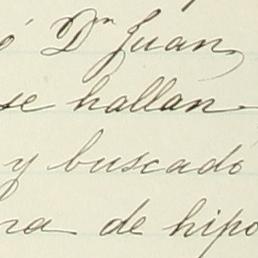 ó Dn Juan
se hallan
y buscado
na de hipo